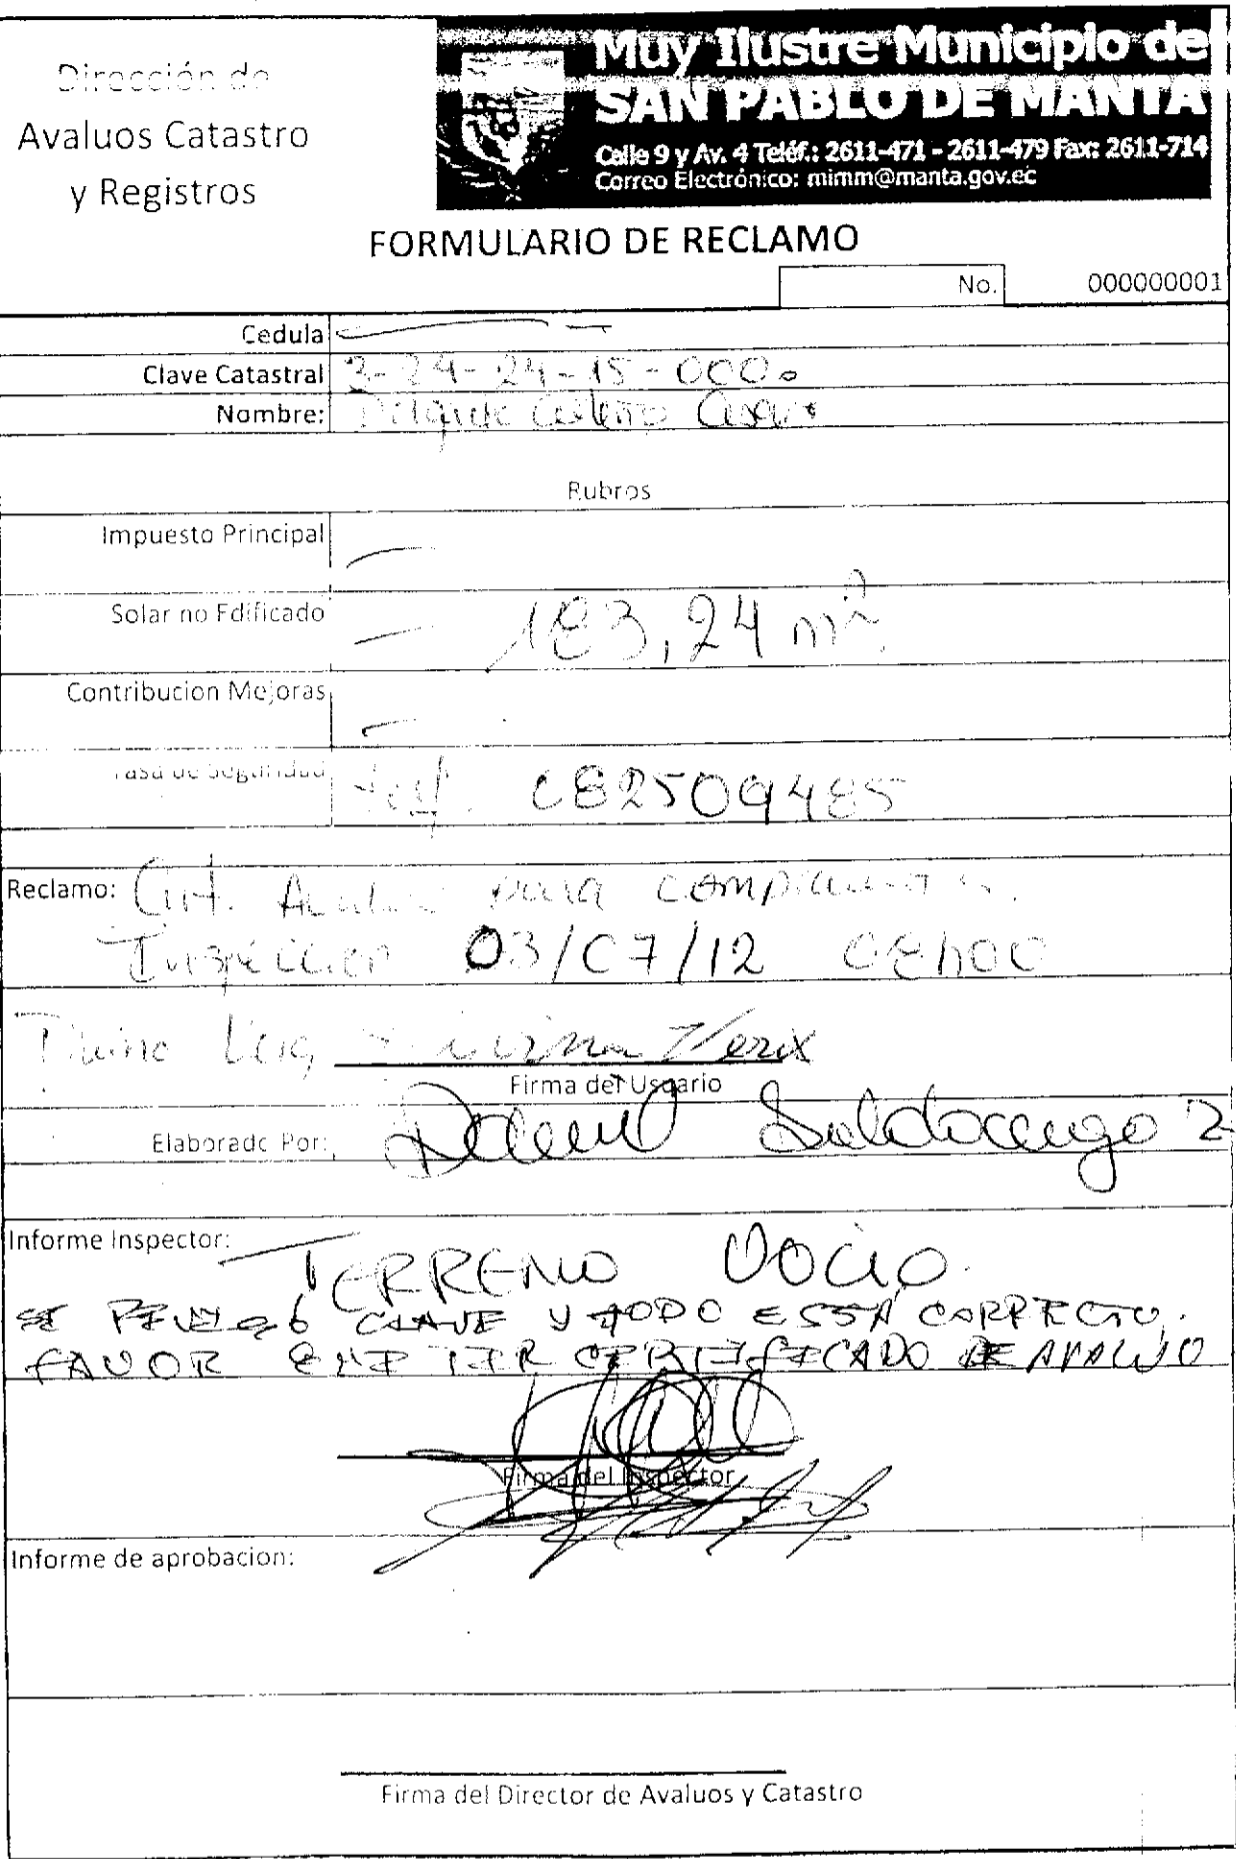 Dirección de
Avaluos Catastro
y Registros
Muy Ilustre Municipio de
SAN PABLO DE MANTA
Calle 9 y Av. 4 Teléf.: 2611-471 - 2611-479 Fax: 2611-714
Correo Electrónico: mimm@manta.gov.ec
FORMULARIO DE RECLAMO
No. 000000001
Cedula
Clave Catastral 3-24-24-15-000
Nombre: Delgado Cedeño
Rubros
Impuesto Principal
Solar no Edificado 183,24 m²
Contribucion Mejoras
Tasa de Seguridad Telf. 082509485
Reclamo: Cert. Avaluo para
Inspección 03/07/12 08h00
Vera
Firma del Usuario
Elaborado Por:
Informe Inspector: TERRENO Vacio.
SE CLAVE Y TODO ESTA CORRECTO.
FAVOR EMITIR CERTIFICADO DE AVALUO
Firma del Inspector
Informe de aprobacion:
Firma del Director de Avaluos y Catastro